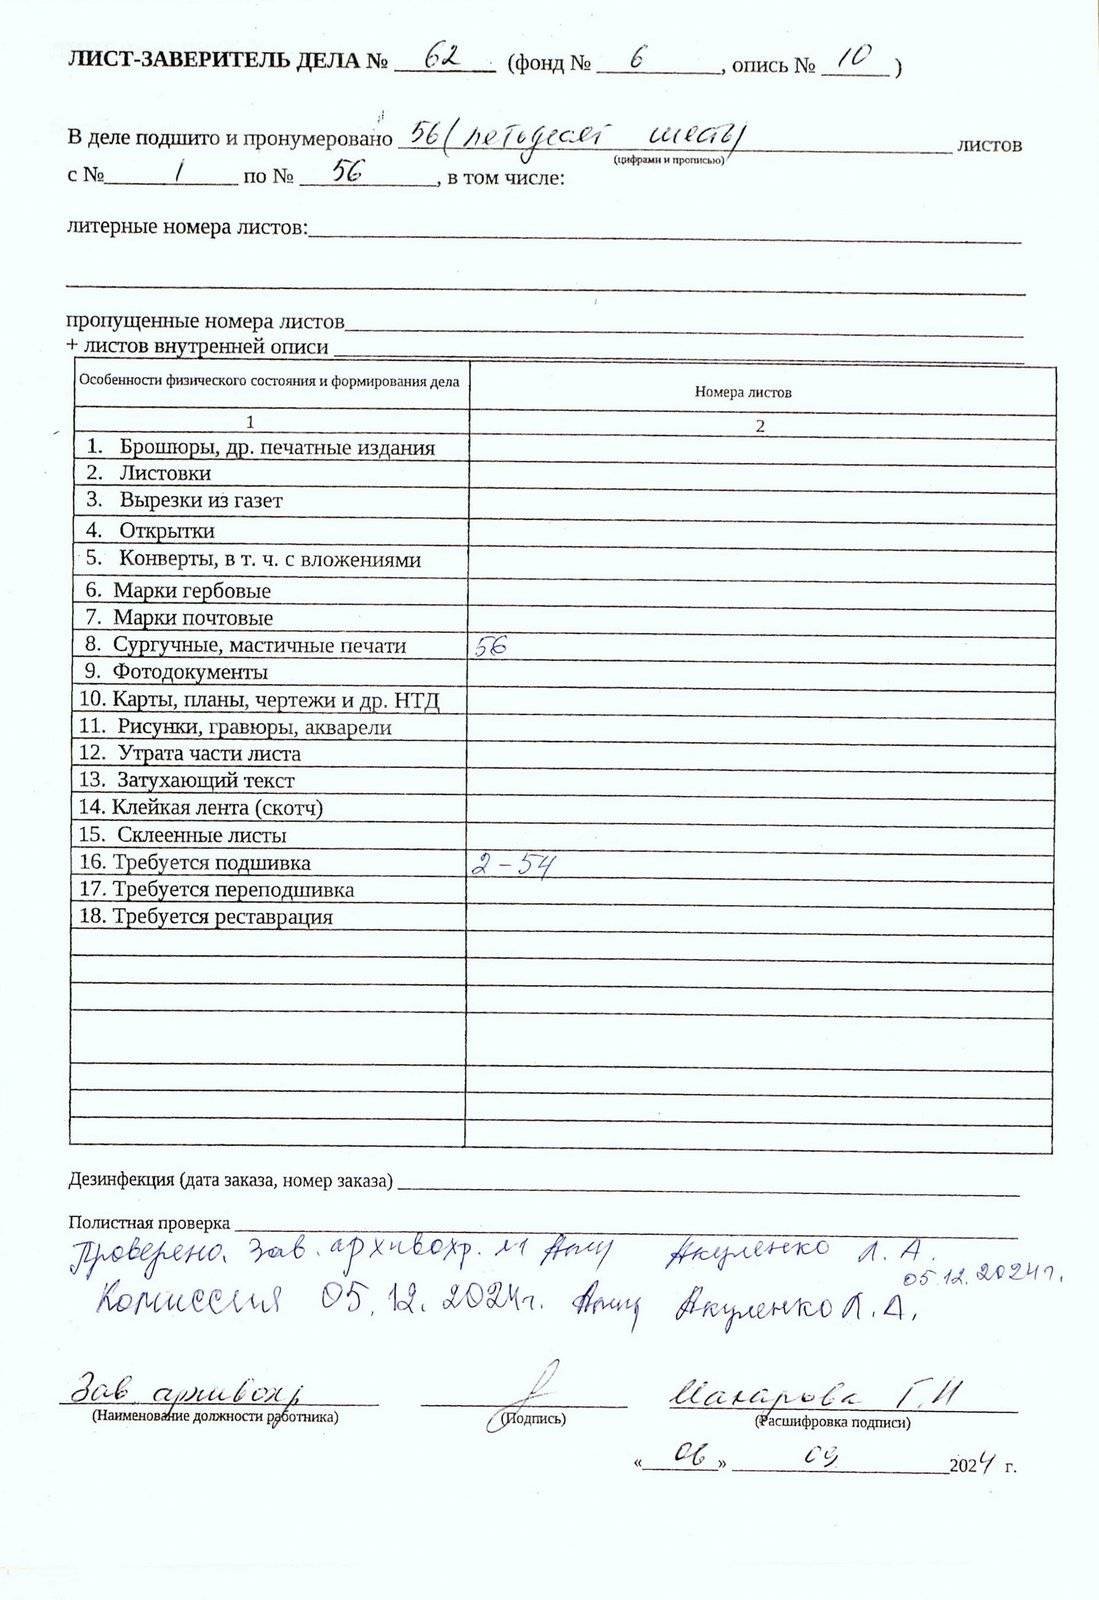 ЛИСТ-ЗАВЕРИТЕЛЬ ДЕЛА № 62 (фонд № 6, опись № 10)
В деле подшито и пронумеровано 56 (петьдесят шесть) листов
(цифрами и прописью)
с № 1 по № 56, в том числе:
литерные номера листов:
пропущенные номера листов
+ листов внутренней описи
Особенности физического состояния и формирования дела Номера листов
1 2
1. Брошюры, др. печатные издания
2. Листовки
3. Вырезки из газет
4. Открытки
5. Конверты, в т. ч. с вложениями
6. Марки гербовые
7. Марки почтовые
8. Сургучные, мастичные печати 56
9. Фотодокументы
10. Карты, планы, чертежи и др. НТД
11. Рисунки, гравюры, акварели
12. Утрата части листа
13. Затухающий текст
14. Клейкая лента (скотч)
15. Склеенные листы
16. Требуется подшивка 2-54
17. Требуется переподшивка
18. Требуется реставрация
Дезинфекция (дата заказа, номер заказа)
Полистная проверка
Проверено. Зав. архивохр. Акуленко Л. А.
05.12.2024г.
Комиссия 05.12.2024г. Акуленко Л.А.
Зав архивохр Макарова Г.И
(Наименование должности работника) (Подпись) (Расшифровка подписи)
«06» 09 2024 г.